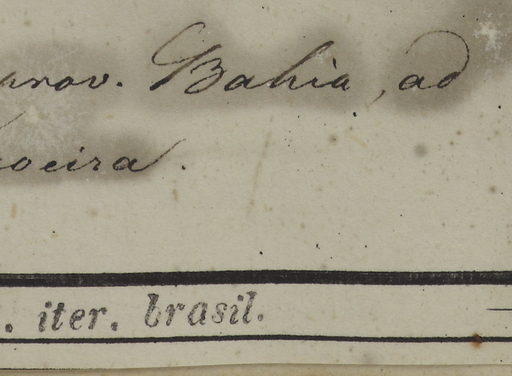 prov. Bahia, ad
oeira.
. iter. brasil.